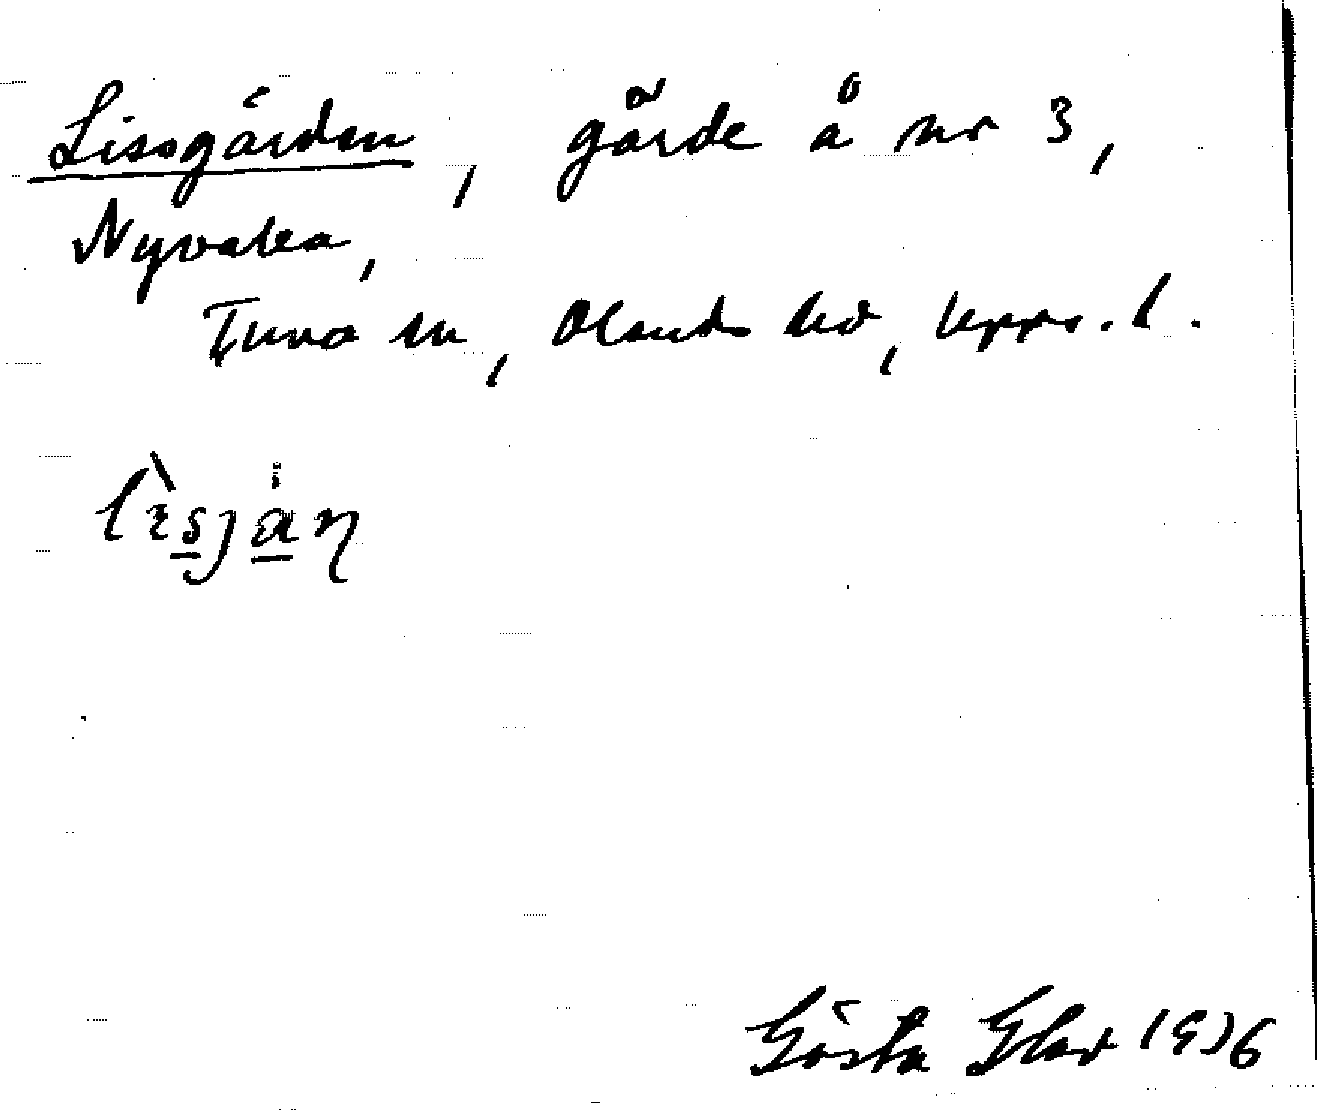 Lissgärden, gärde å nr 3,
Nyvalla,
Tuna sn, Olands hd, Upps. l.
Gösta Elov 1936